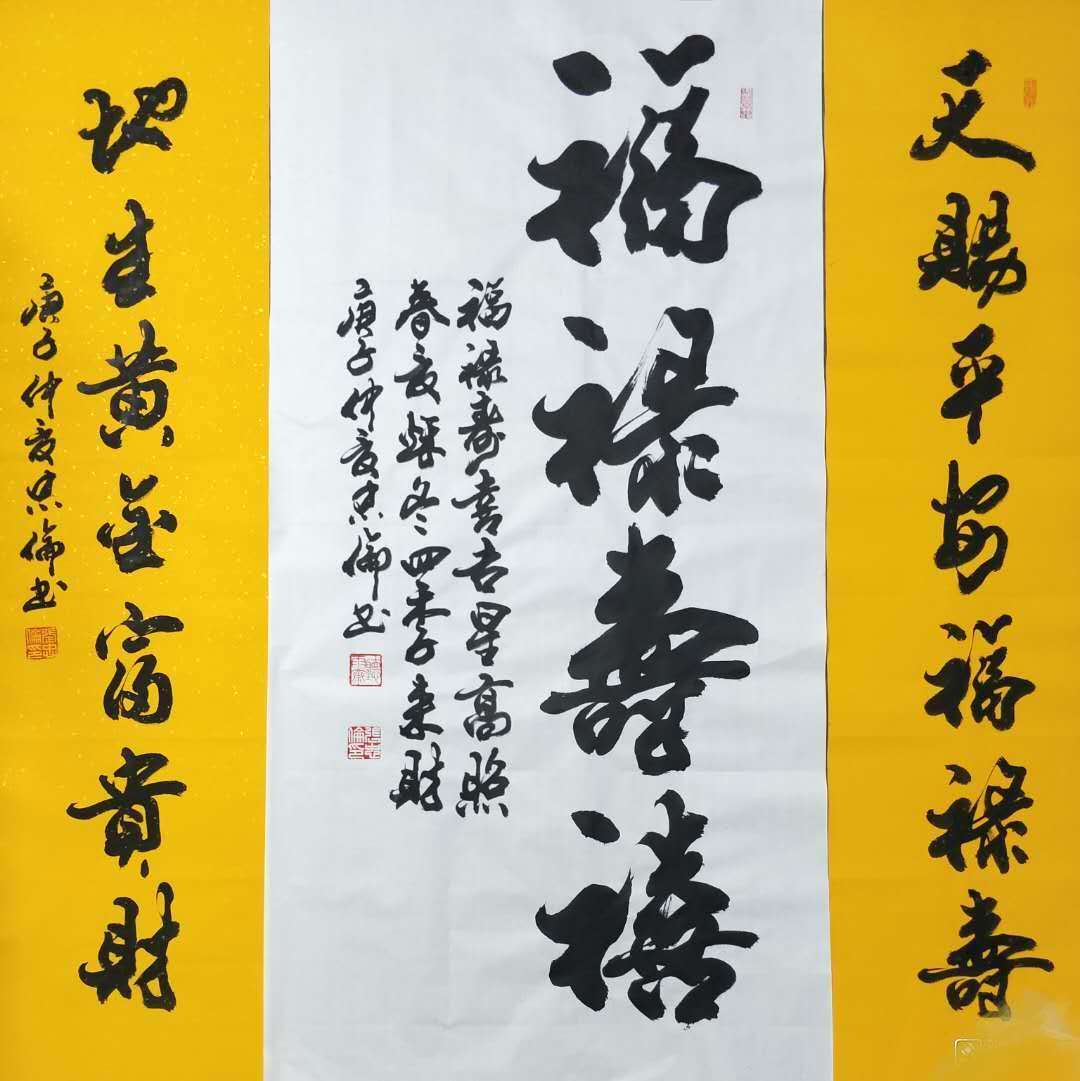 天賜平安福祿壽
福祿壽禧
福祿寿喜吉星高照
春夏秌冬四季来財
庚子仲夏忠倫书
地生黄金富貴財
庚子仲夏忠倫书